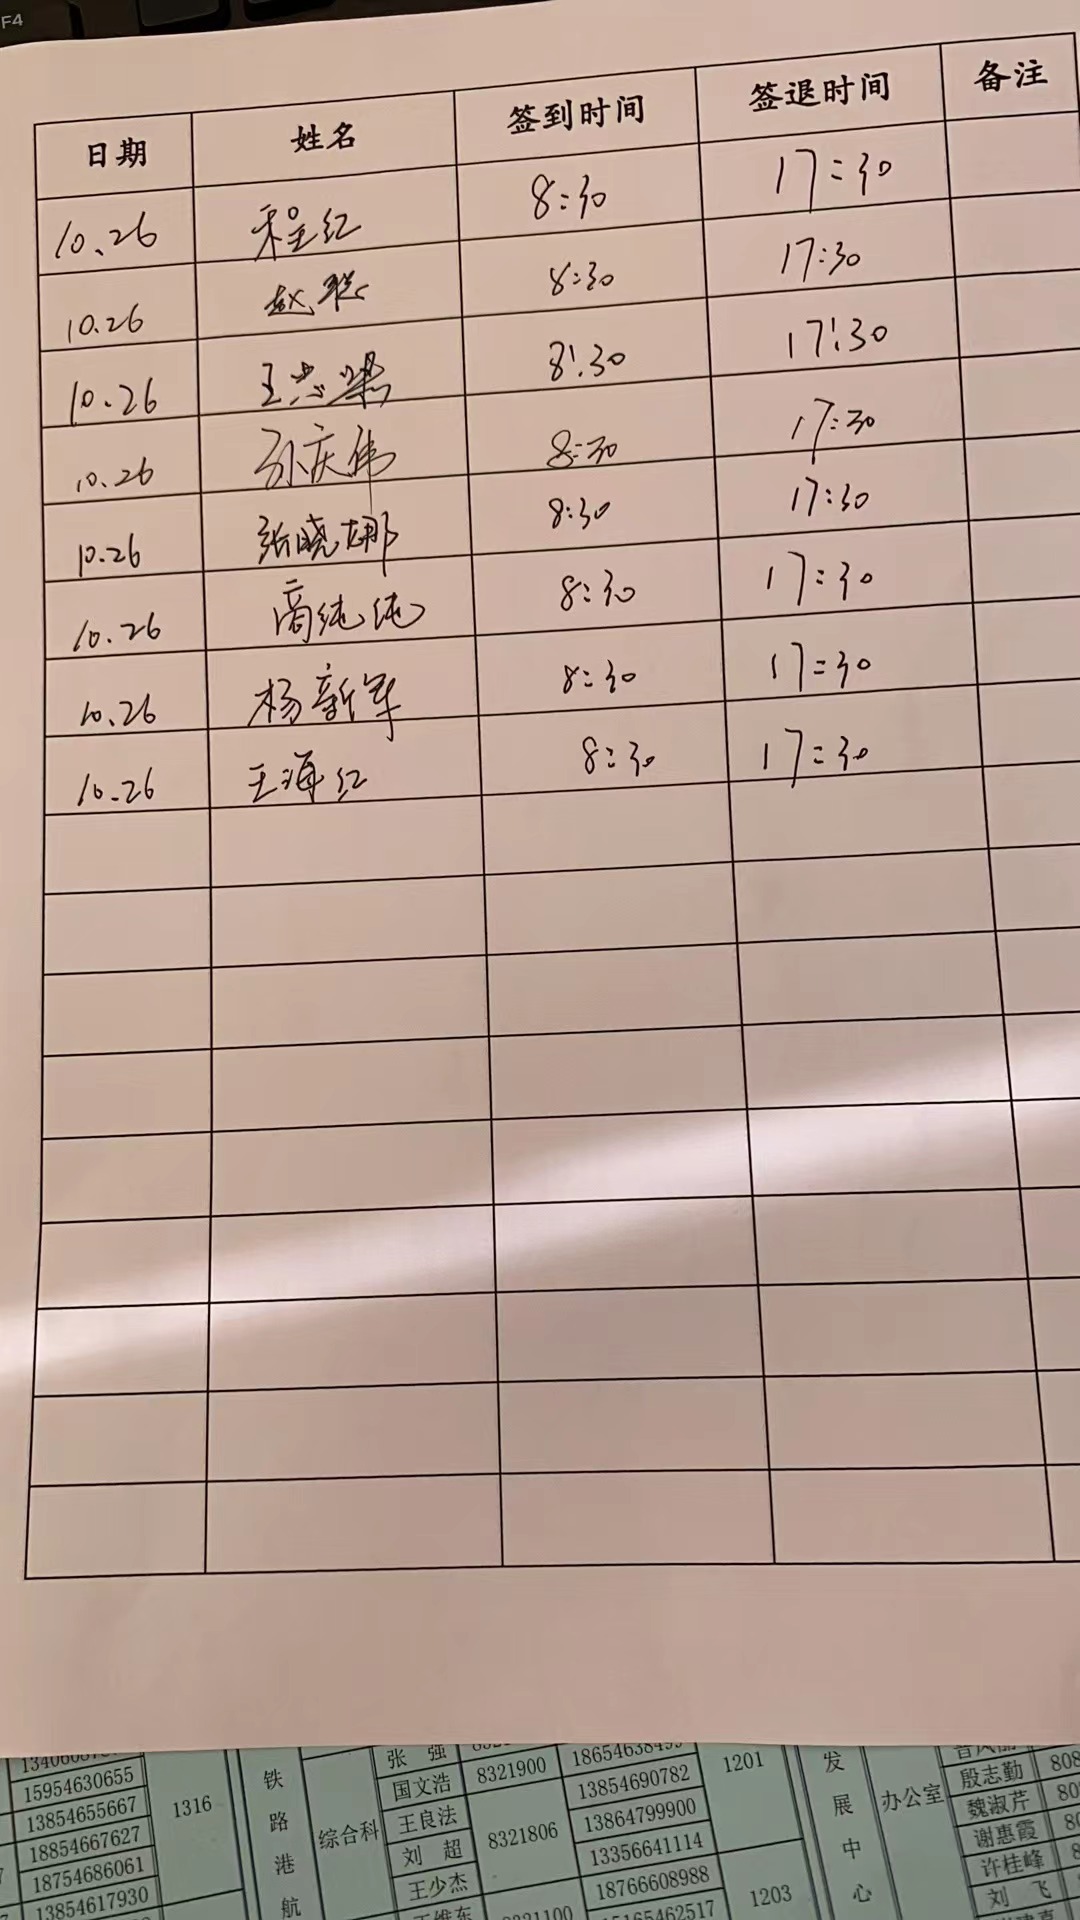 F4
日期 姓名 签到时间 签退时间 备注
10.26 程红 8:30 17:30
10.26 赵聪 8:30 17:30
10.26 王志梁 8:30 17:30
10.26 孙庆伟 8:30 17:30
10.26 张晓娜 8:30 17:30
10.26 商纯纯 8:30 17:30
10.26 杨新军 8:30 17:30
10.26 王海红 8:30 17:30
张强
15954630655 国文浩 8321900 1201 殷志勤
13854655667 1316 王良法 13854690782 办公室 魏淑芹
18854667627 综合科 刘超 8321806 13864799900 谢惠霞
18754686061 王少杰 13356641114 许桂峰
13854617930 18766608988 1203 刘飞
15165462517
铁路港航
发展中心